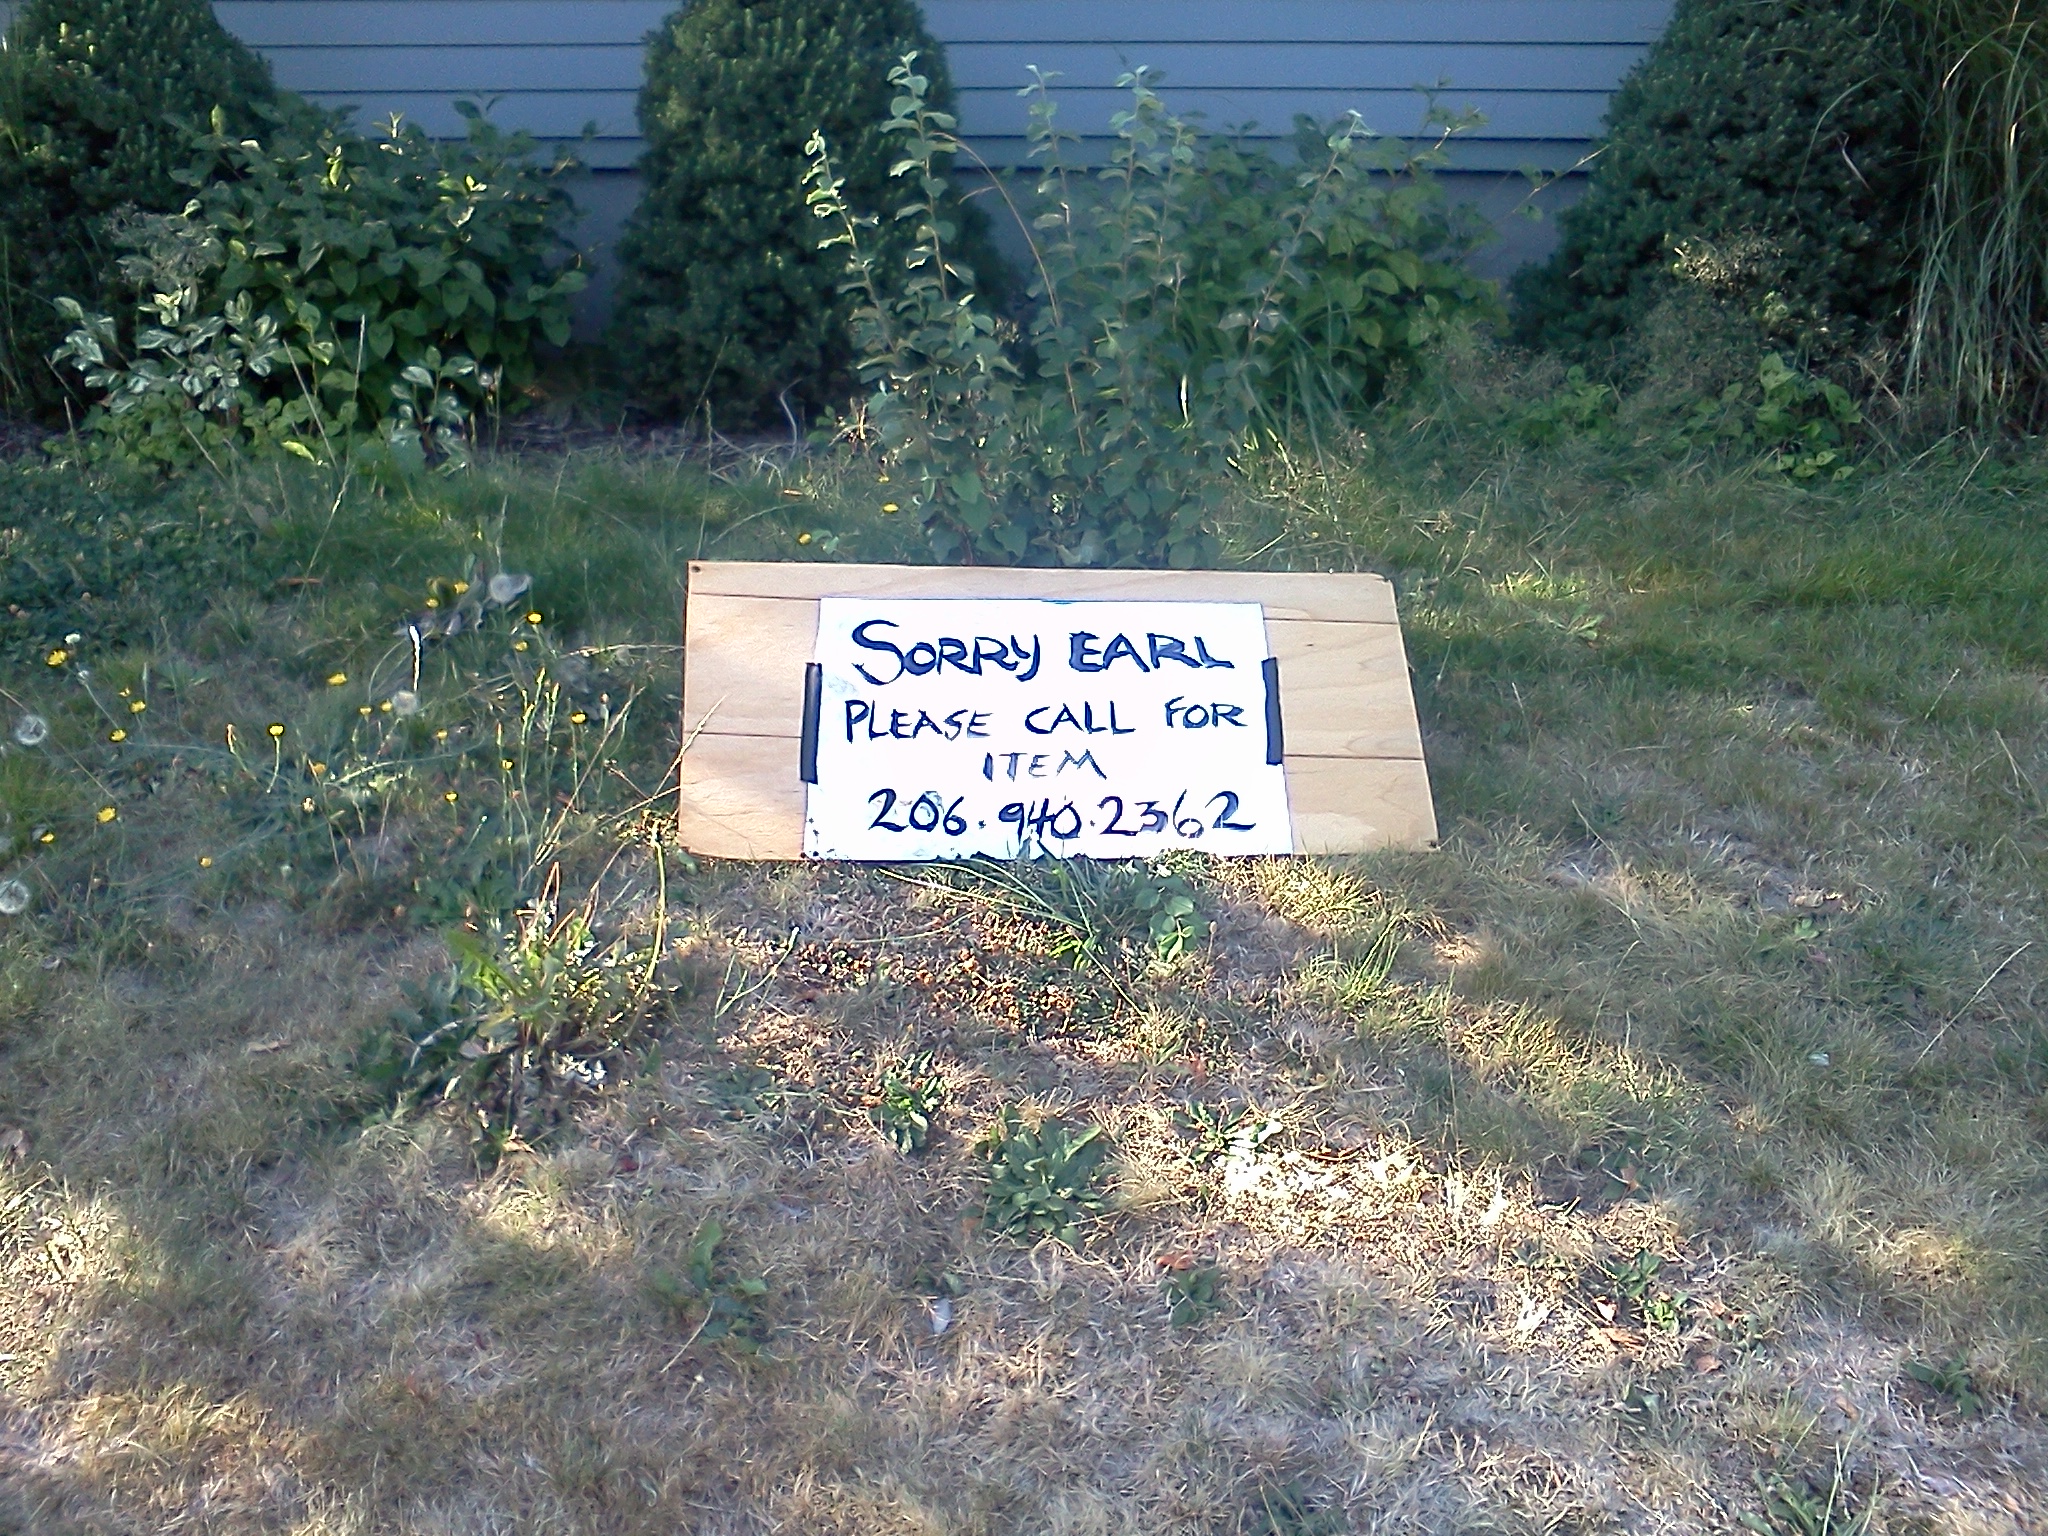 SORRY EARL
PLEASE CALL FOR
ITEM
206.940.2362